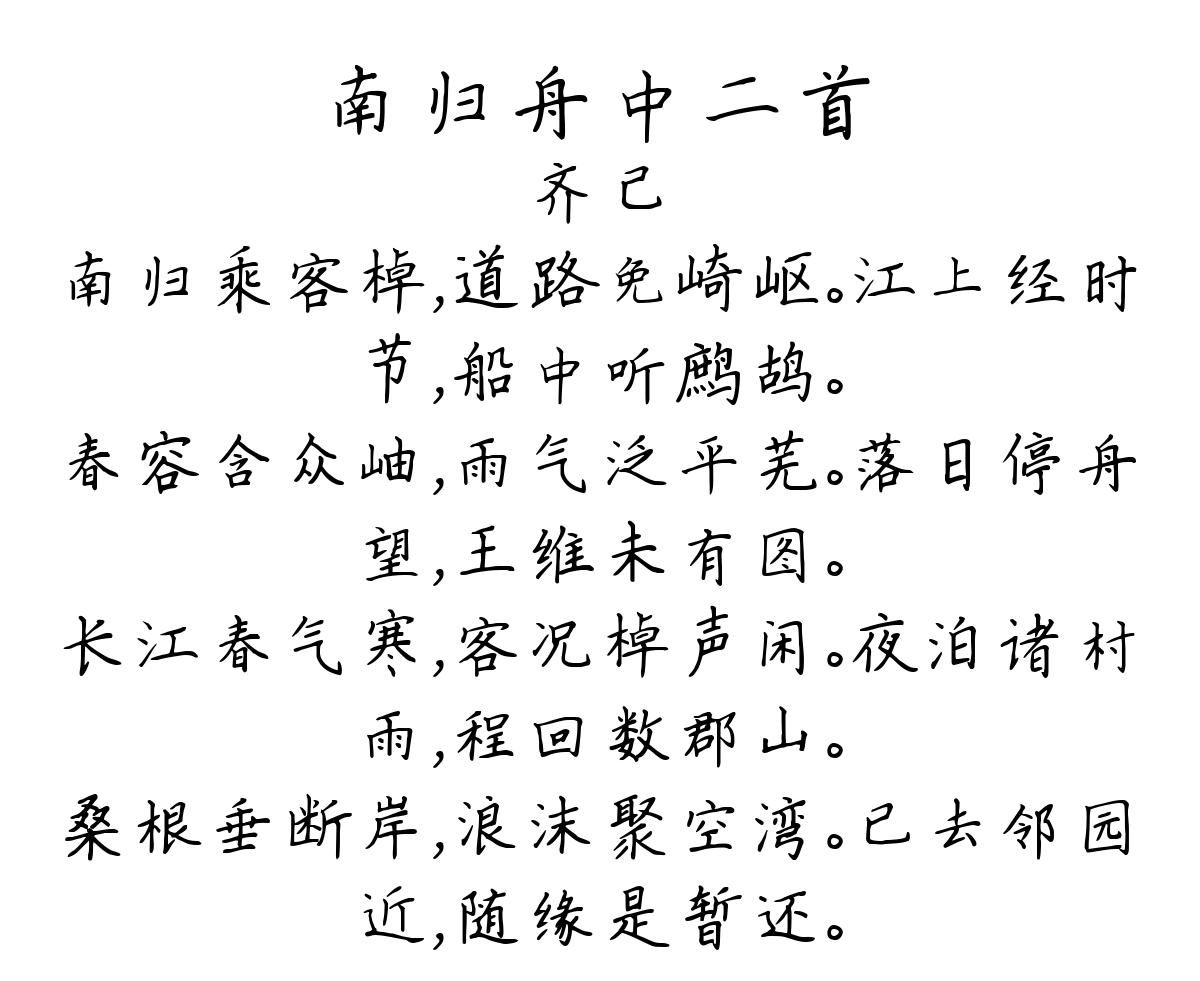 南归舟中二首
齐己
南归乘客棹,道路免崎岖。江上经时
节,船中听鹧鸪。
春容含众岫,雨气泛平芜。落日停舟
望,王维未有图。
长江春气寒,客况棹声闲。夜泊诸村
雨,程回数郡山。
桑根垂断岸,浪沫聚空湾。已去邻园
近,随缘是暂还。